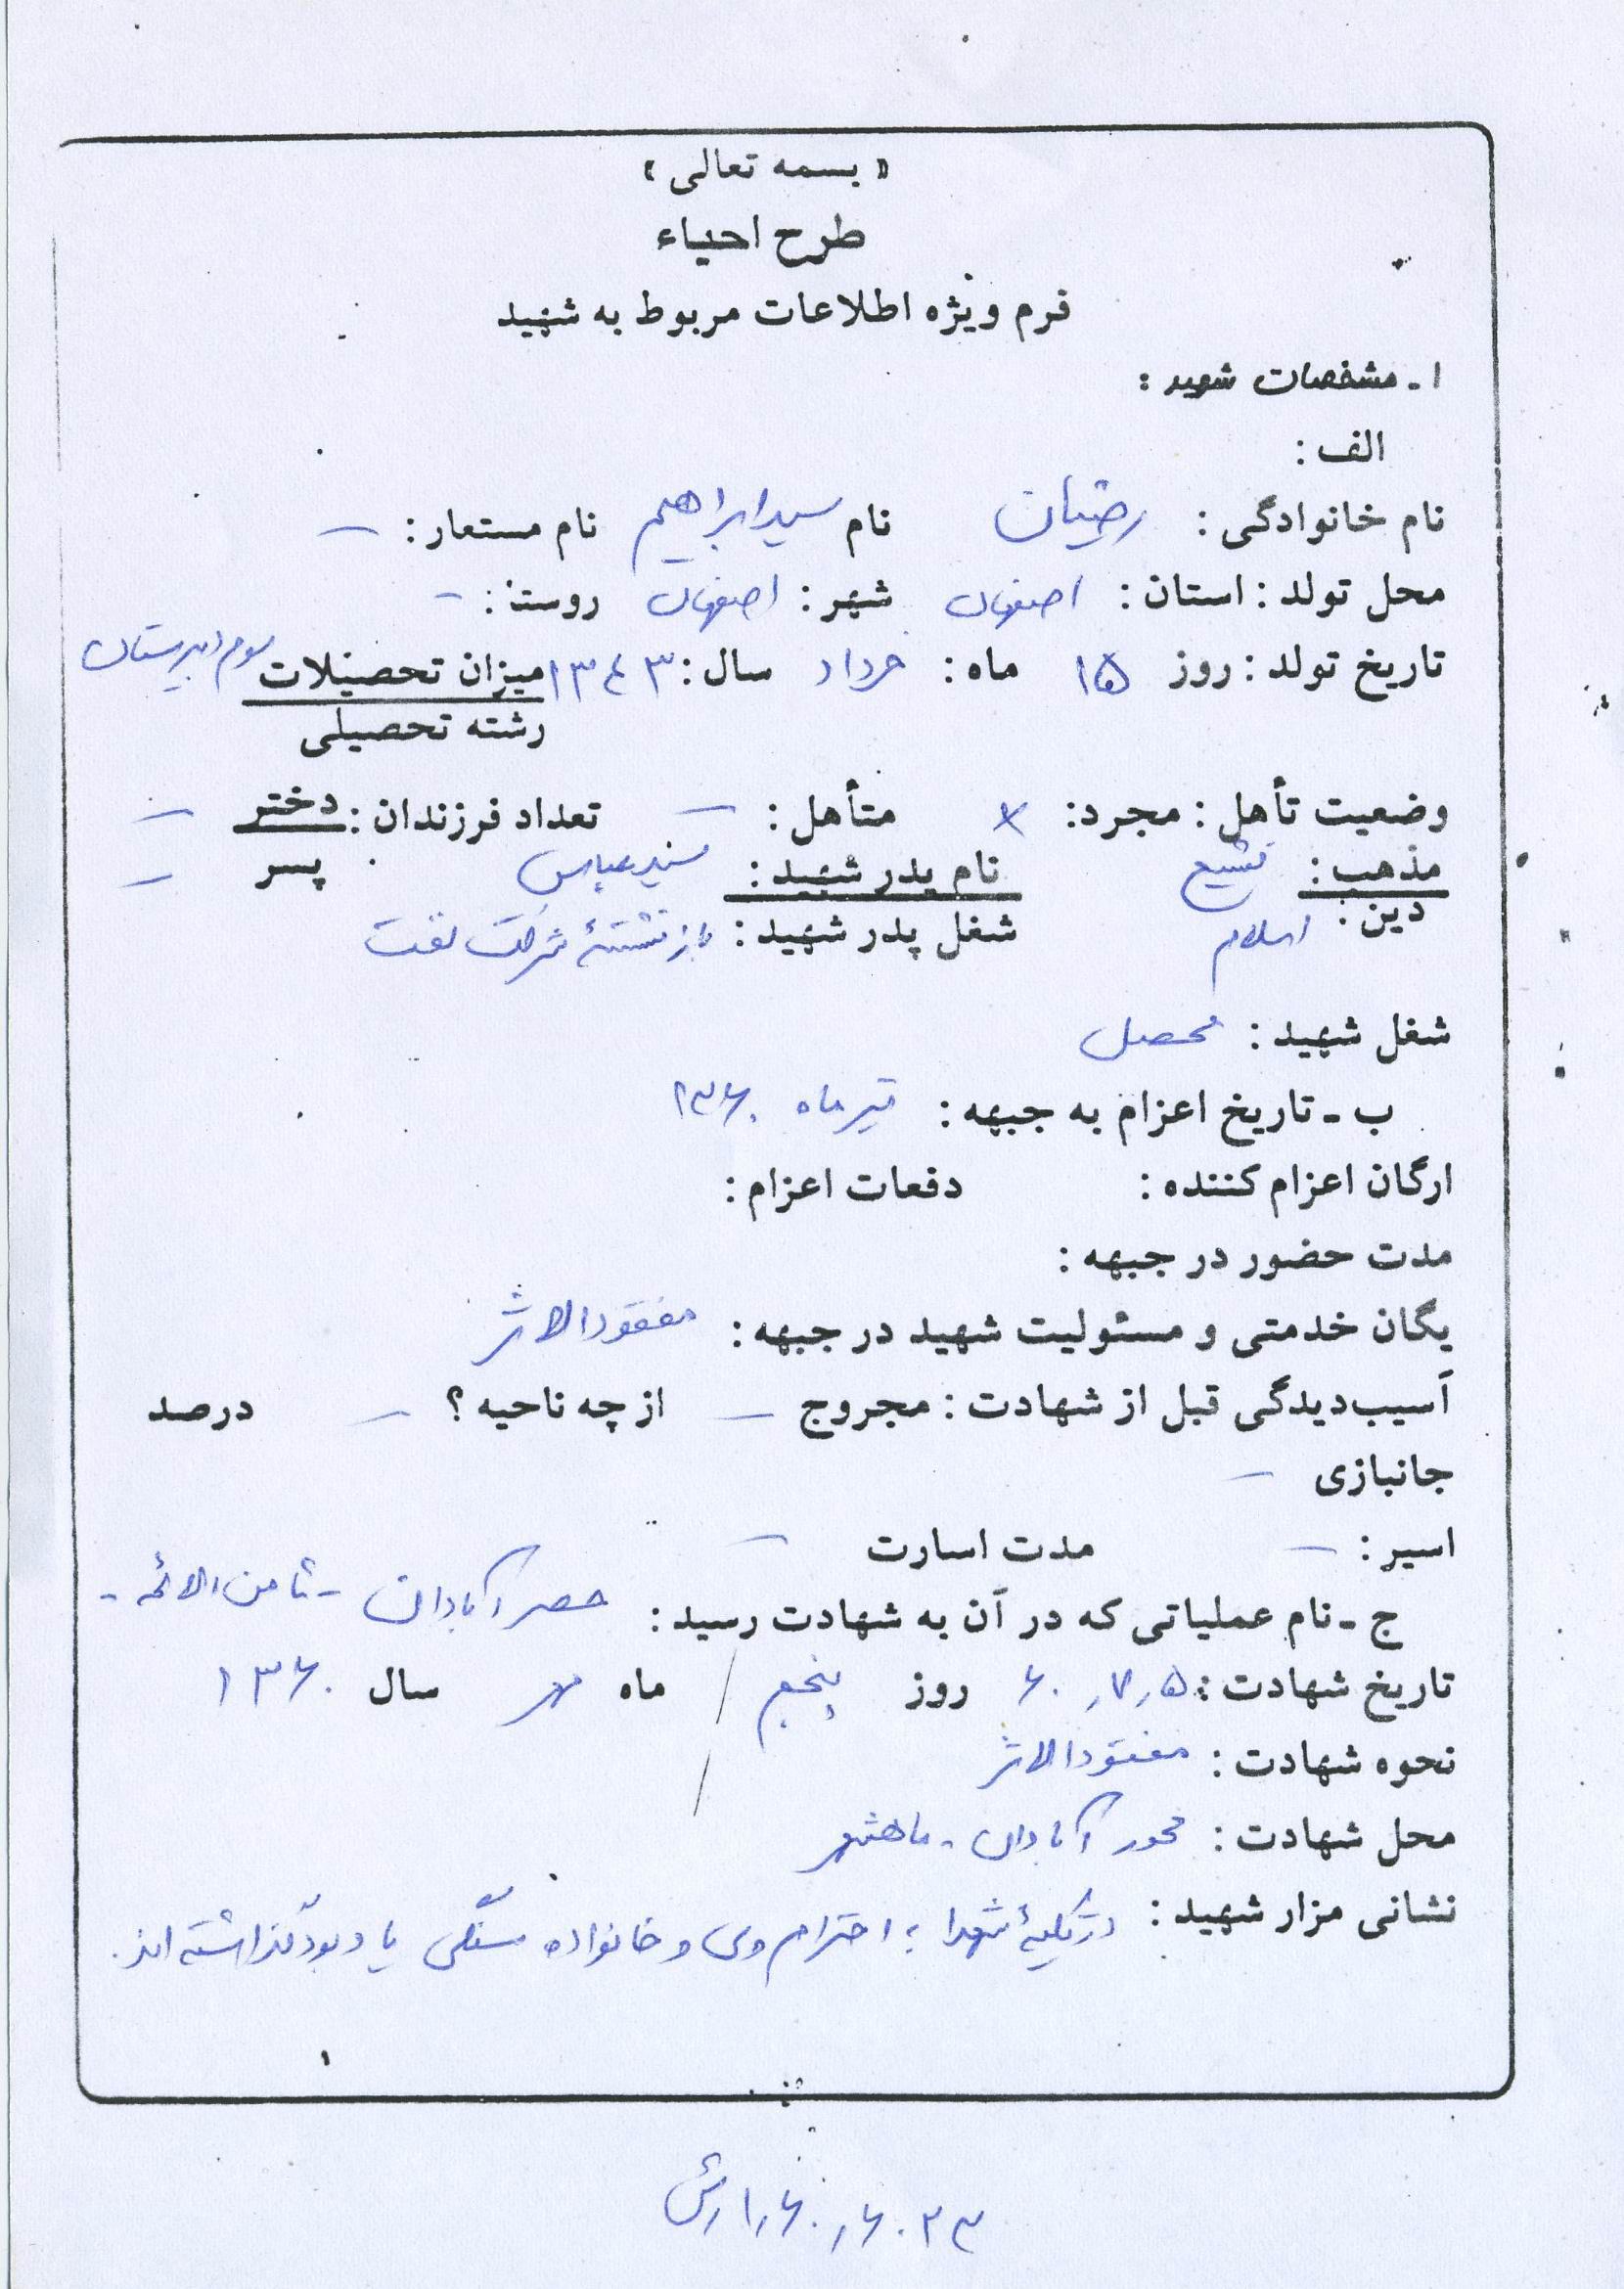 « بسمه تعالی »
طرح احیاء
فرم ویژه اطلاعات مربوط به شهید
۱ـ مشخصات شهید :
الف :
نام خانوادگی : رضیان نام سید ابراهیم نام مستعار : –
محل تولد : استان : اصفهان شهر : اصفهان روستا : –
تاریخ تولد : روز ۱۵ ماه : خرداد سال : ۱۳۴۳ میزان تحصیلات سوم دبیرستان
رشته تحصیلی
وضعیت تأهل : مجرد : × متأهل : – تعداد فرزندان : دختر –
مذهب : تشیع نام پدر شهید : سید عباس پسر –
دین : اسلام شغل پدر شهید : بازنشستهٔ شرکت نفت
شغل شهید : محصل
ب ـ تاریخ اعزام به جبهه : تیرماه ۱۳۶۰
ارگان اعزام کننده : دفعات اعزام :
مدت حضور در جبهه :
یگان خدمتی و مسئولیت شهید در جبهه : مفقودالاثر
آسیب‌دیدگی قبل از شهادت : مجروح – از چه ناحیه ؟ – درصد
جانبازی –
اسیر : – مدت اسارت –
ج ـ نام عملیاتی که در آن به شهادت رسید : حصر آبادان - ثامن الائمه -
تاریخ شهادت : ۶۰,۷,۵ روز پنجم / ماه مهر سال ۱۳۶۰
نحوه شهادت : مفقودالاثر /
محل شهادت : محور آبادان - ماهشهر
نشانی مزار شهید : در تکیهٔ شهدا به احترام وی و خانواده سنگی یادبود گذاشته اند.
۱